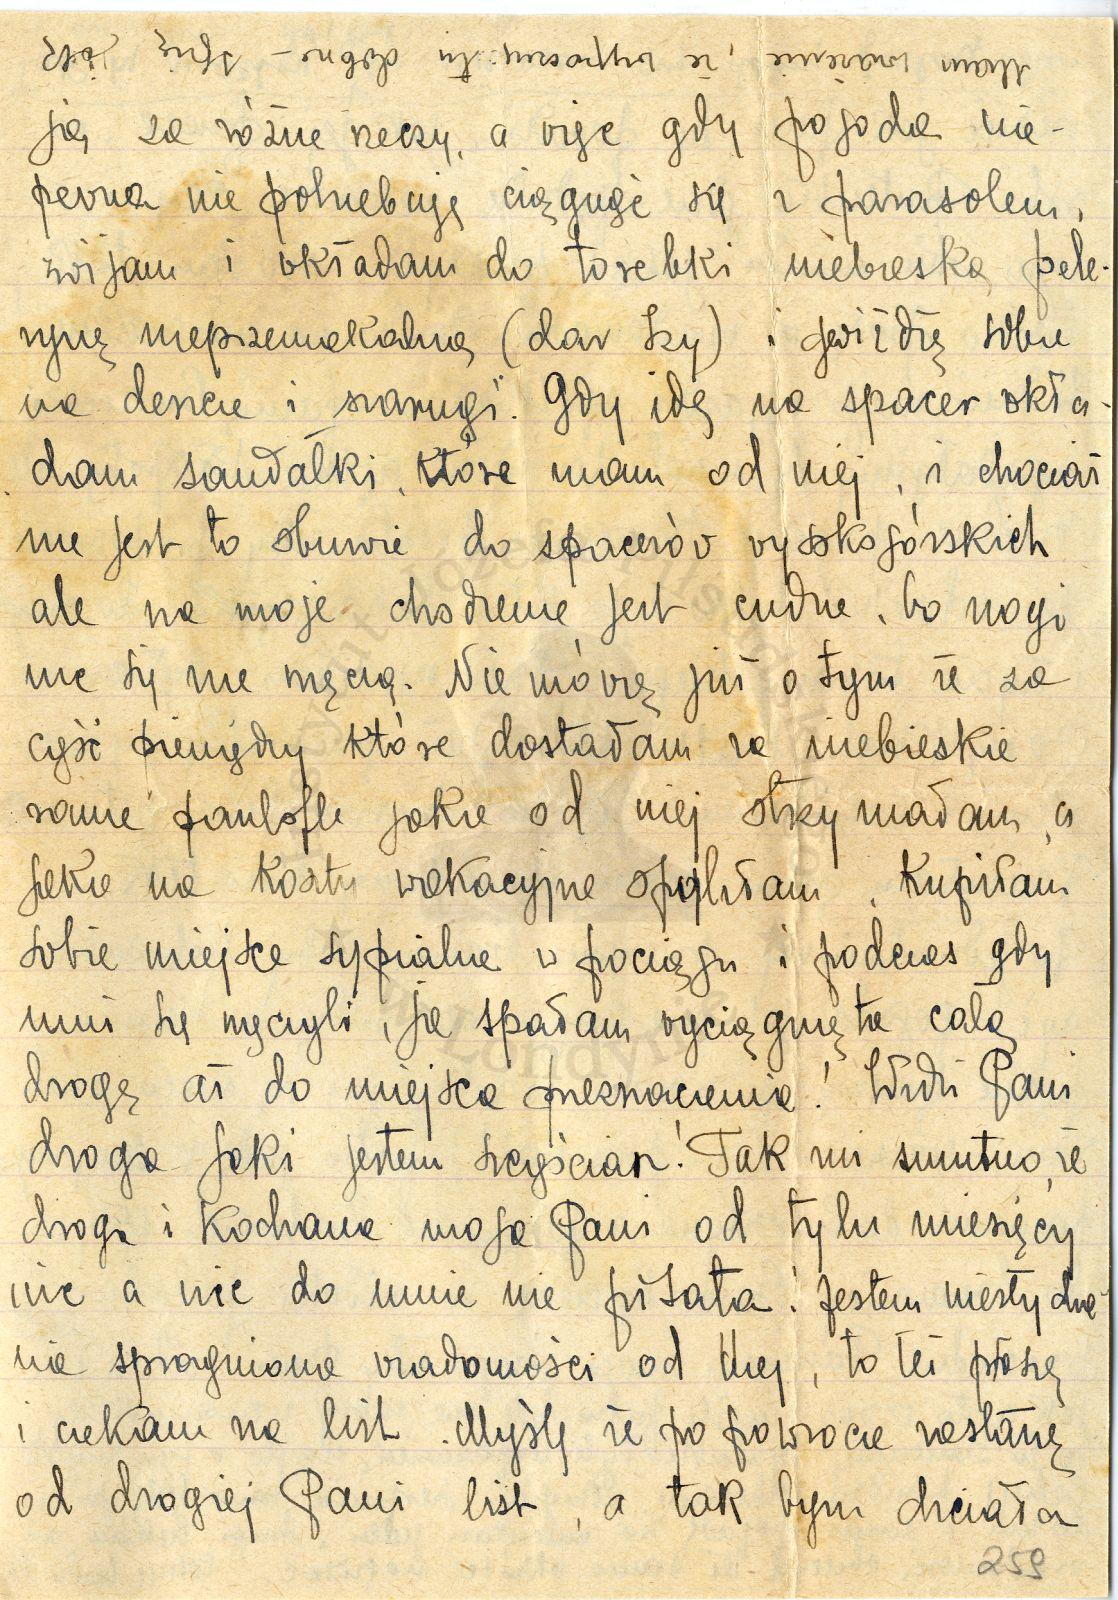 Mam wrażenie, że wypocznę tu dobrze – śpię jak
ją za różne rzeczy, a więc gdy pogoda nie-
pewna nie potrzebuję ciągnąć się z parasolem,
zwijam i wkładam do torebki niebieską pele-
rynę nieprzemakalną (dar Izy) i gwiżdżę sobie
na deszcze i szarugi. Gdy idę na spacer wkła-
dam sandałki, które mam od niej, i chociaż
nie jest to obuwie do spacerów wysokogórskich
ale na moje chodzenie jest cudne, bo nogi
nic się nie męczą. Nie mówię już o tym że za
część pieniędzy które dostałam za niebieskie
ranne pantofle jakie od niej otrzymałam, a
jakie na koszty wakacyjne spyliłam, kupiłam
sobie miejsce sypialne w pociągu i podczas gdy
inni się męczyli, ja spałam wyciągnięta całą
drogę aż do miejsca przeznaczenia! Widzi Pani
droga jaki jestem szczęściarz! Tak mi smutno, że
droga i kochana moja Pani od tylu miesięcy
nic a nic do mnie nie pisała! Jestem niesłycha-
nie spragniona wiadomości od Niej, to też proszę
i czekam na list. Myślę że po powrocie zastanę
od drogiej Pani list, a tak bym chciała
259